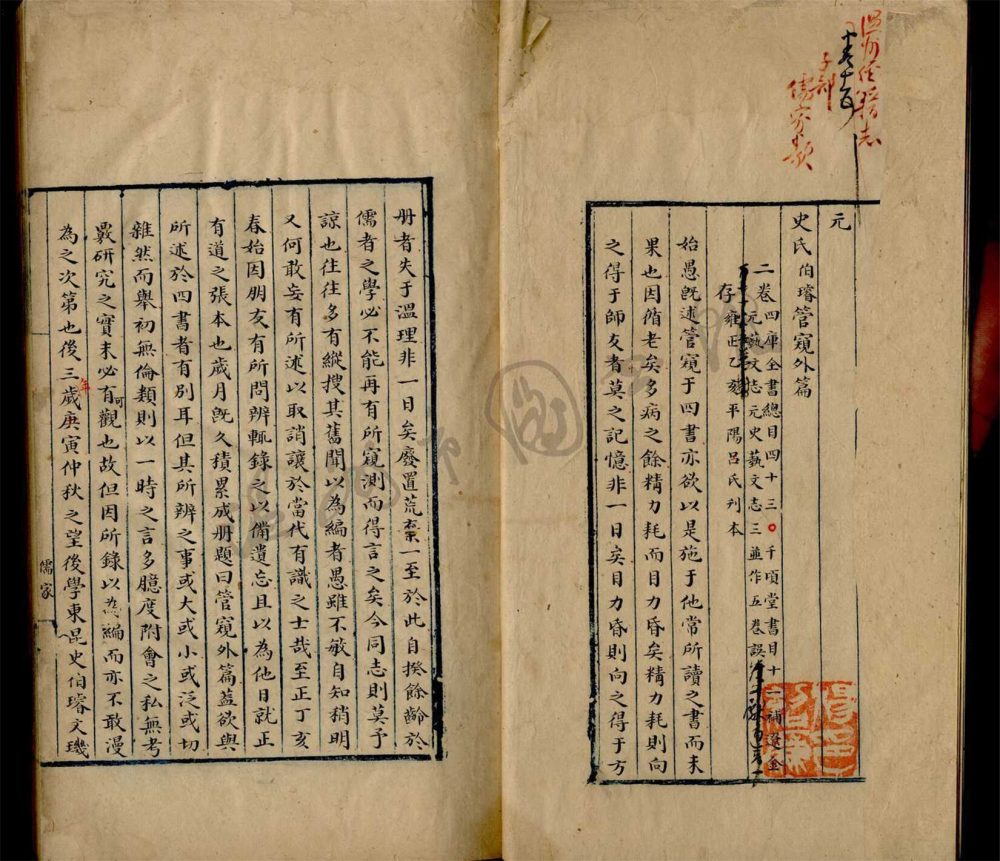 溫州經籍志
子部
儒家類
元
史氏伯璿管窺外篇
二卷四庫全書總目四十三千頃堂書目十一補遼金
元藝文志元史藝文志三並作五卷誤
存雍正乙巳平陽呂氏刊本
始愚旣述管窺于四書亦欲以是施于他常所讀之書而未
果也因循老矣多病之餘精力耗而目力昏矣精力耗則向
之得于師友者莫之記憶非一日矣目力昏則向之得于方
册者失于溫理非一日矣廢置荒一至於此自揆餘齡於
儒者之學必不能再有所窺測而得言之矣今同志則莫予
諒也往往多有縱搜其舊聞以為編者愚雖不敏自知稍明
又何敢妄有所述以取誚讓於當代有識之士哉至正丁亥
春始因朋友有所問辨輒錄之以備遺忘且以為他日就正
有道之張本也歲月旣久積累成册題曰管窺外篇蓋欲與
所述於四書者有別耳但其所辨之事或大或小或泛或切
雜然而舉初無倫類則以一時之言多臆度附會之私無考
覈研究之實未必有可觀也故但因所錄以為編而亦不敢漫
為之次第也後三年歲庚寅仲秋之望後學東昆史伯璿文璣
儒家